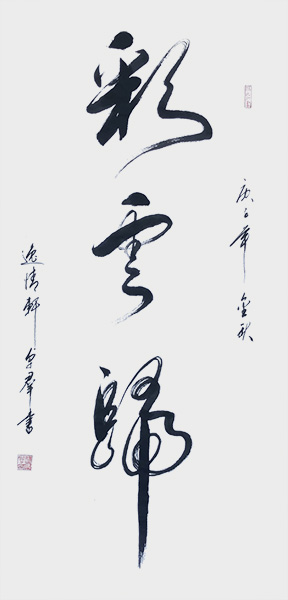 庚子年金秋
彩雲歸
逸情軒卓群書